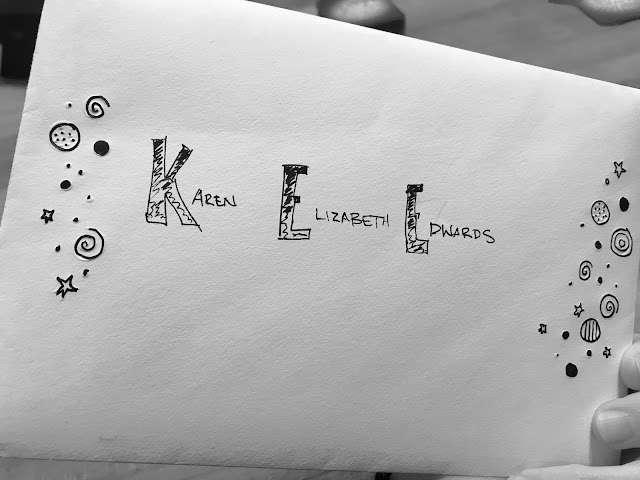 KAREN ELIZABETH EDWARDS